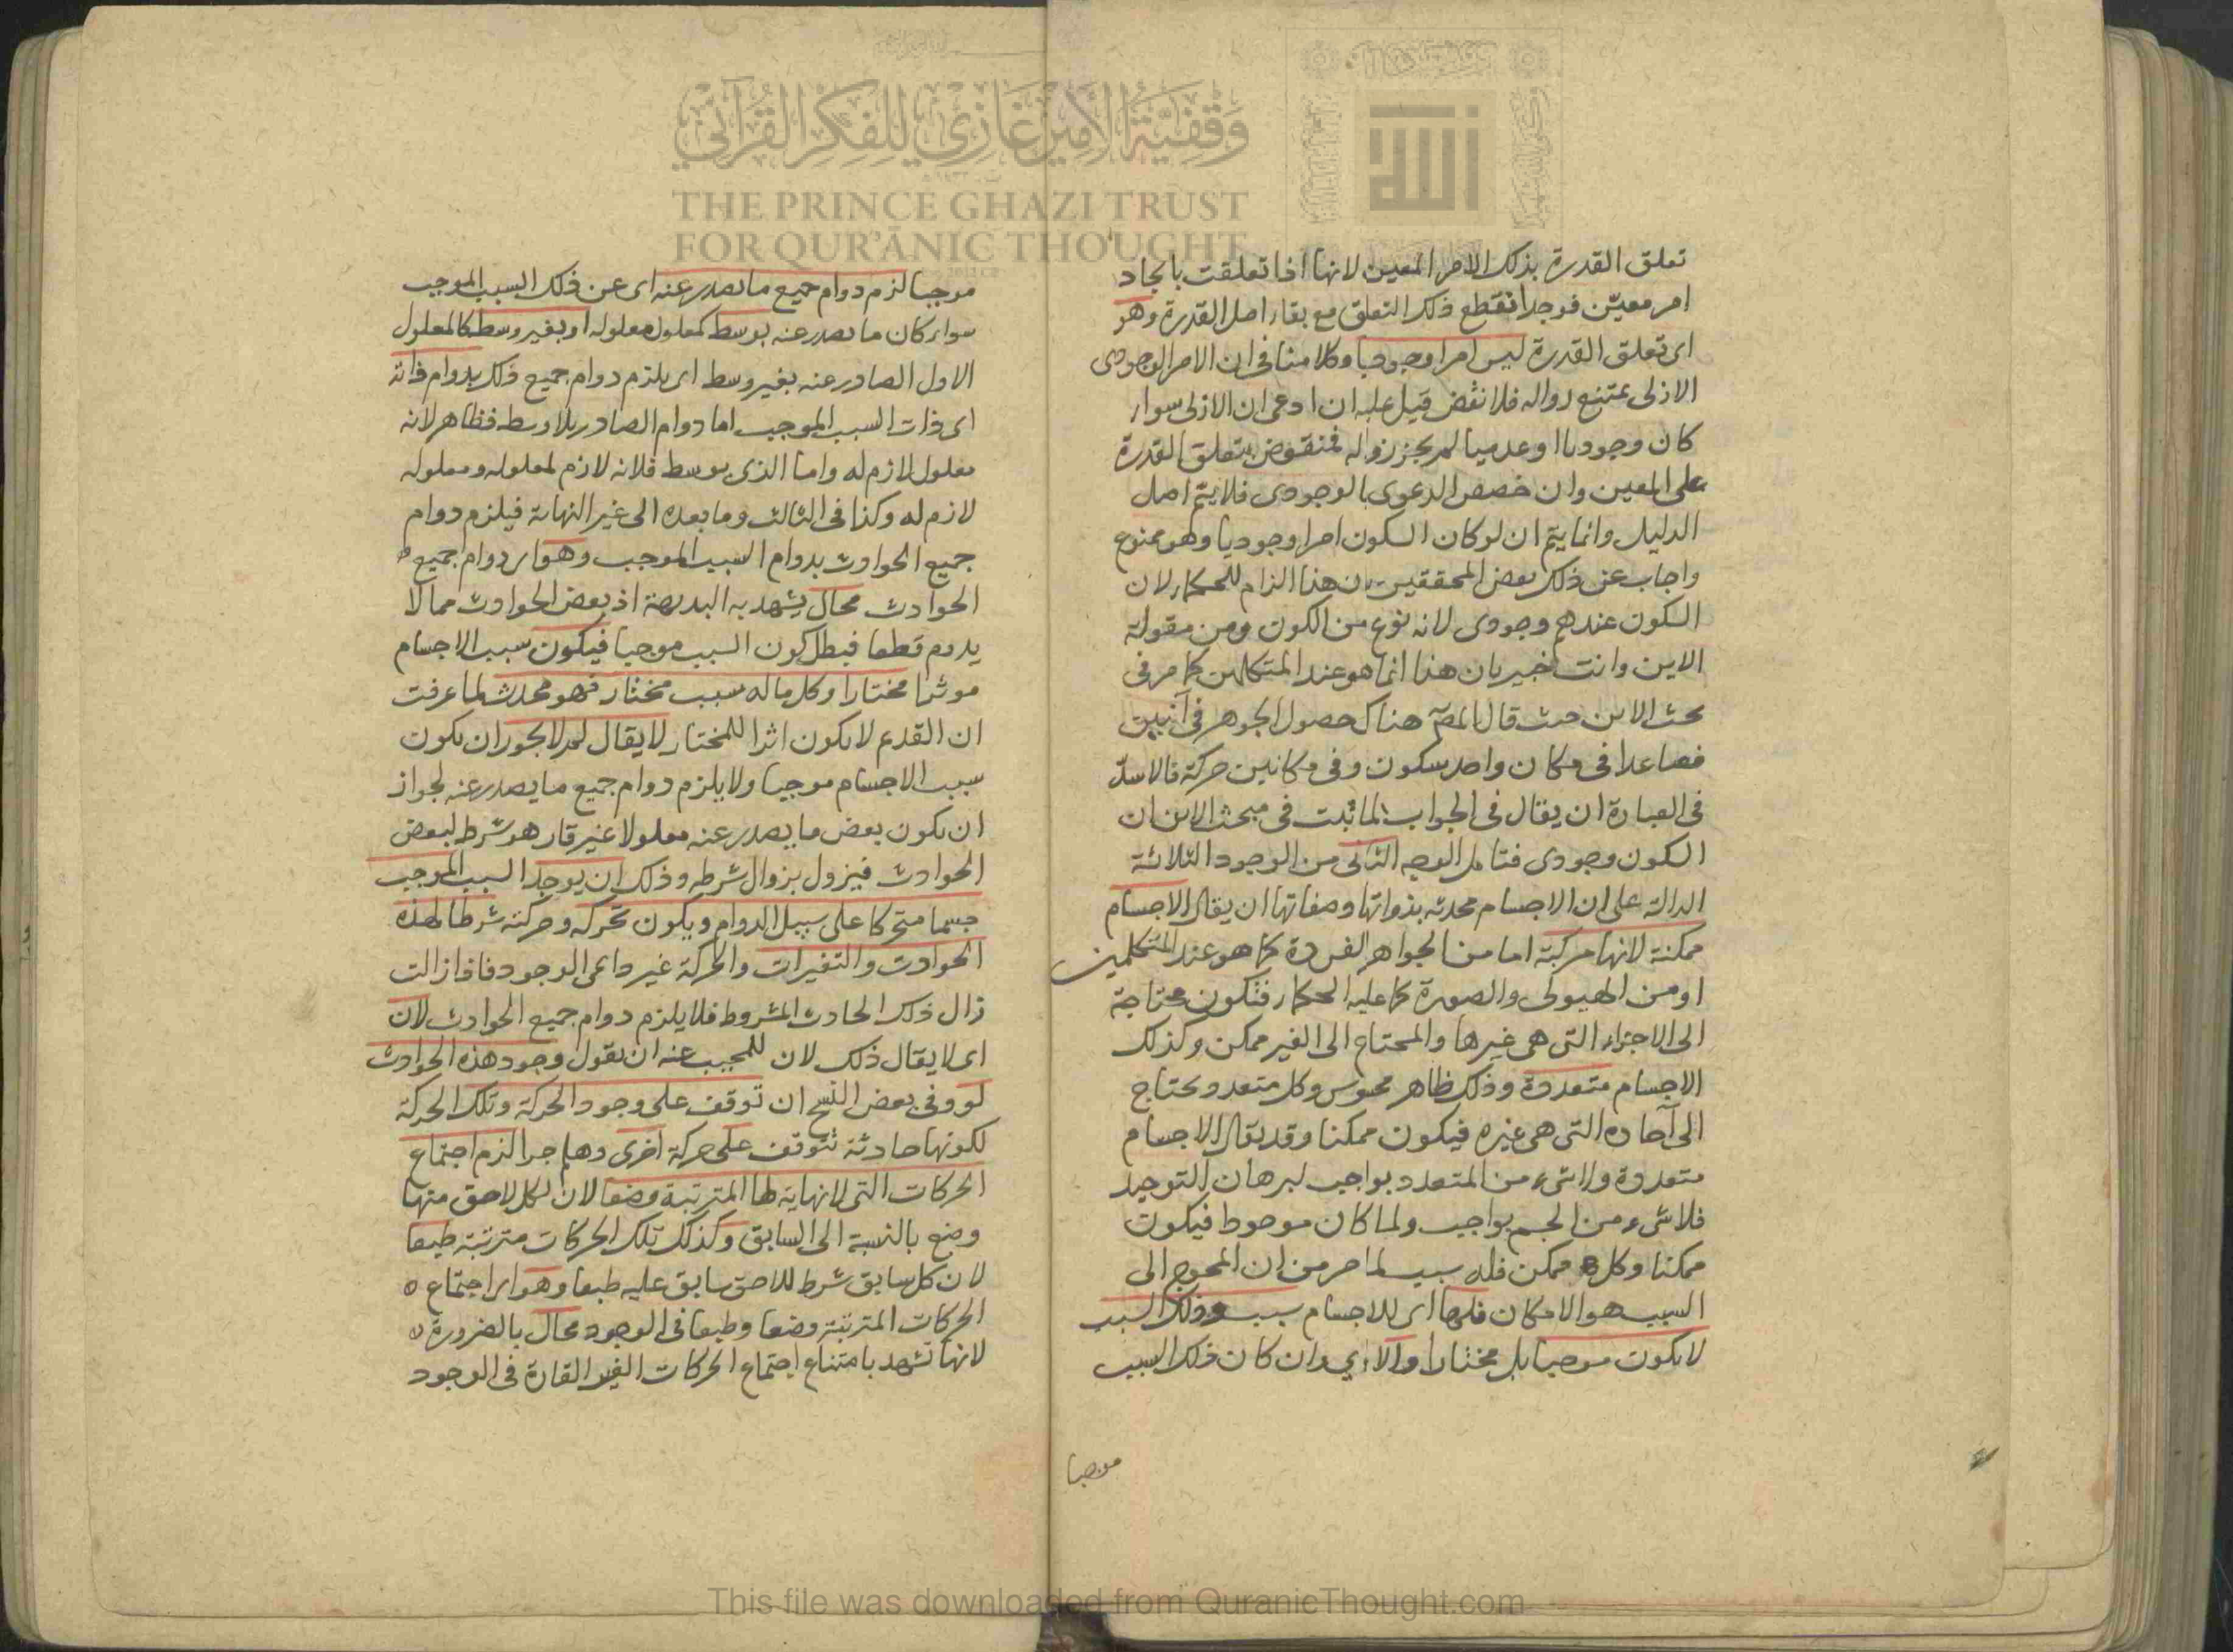 وقفية الأمير غازي للفكر القرآني
THE PRINCE GHAZI TRUST
FOR QUR'ĀNIC THOUGHT
الله
تعلق القدرة بذلك الامر المعين لانها اذا تعلقت بايجاد
امر معين فوجد انقطع ذلك التعلق مع بقاء اصل القدرة وهو
اى تعلق القدرة ليس امرا وجوديا وكلامنا فى ان الامر الوجودى
الازلى يمتنع زواله فلا نقض قيل عليه ان ادعى ان الازلى سواء
كان وجوديا او عدميا لم يجز زواله فمنقوض بتعلق القدرة
على المعين وان خصص الدعوى بالوجودى فلا يتم اصل
الدليل وانما يتم ان لو كان السكون امرا وجوديا وهو ممنوع
واجاب عن ذلك بعض المحققين بان هذا الزام للحكماء لان
السكون عندهم وجودى لانه نوع من الكون ومن مقولة
الاين وانت خبير بان هذا انما هو عند المتكلمين كما مر فى
بحث الاين حيث قال المص هناك حصول الجوهر فى آنين
فصاعدا فى مكان واحد سكون وفى مكانين حركة فالاسد
فى العبارة ان يقال فى الجواب لما ثبت فى مبحث الاين ان
الكون وجودى فتامل الوجه الثانى من الوجود الثلاثة
الدالة على ان الاجسام محدثه بذواتها وصفاتها ان يقال الاجسام
ممكنة لانها مركبة اما من الجواهر الفردة كما هو عند المتكلمين
او من الهيولى والصورة كما عليه الحكماء فتكون محتاجة
الى الاجزاء التى هى غيرها والمحتاج الى الغير ممكن وكذلك
الاجسام متعددة وذلك ظاهر محسوس وكل متعدد محتاج
الى آحاده التى هى غيره فيكون ممكنا وقد يقال الاجسام
متعددة ولا شىء من المتعدد بواجب لبرهان التوحيد
فلا شىء من الجسم بواجب ولما كان موجودا فيكون
ممكنا وكل ممكن فله سبب لما مر من ان المحوج الى
السبب هو الامكان فلها اى للاجسام سبب وذلك السبب
لا يكون موجبا بل مختارا والا اي وان كان ذلك السبب
موجبا
موجبا لزم دوام جميع ما يصدر عنه اى عن ذلك السبب الموجب
سواء كان ما يصدر عنه بوسط كمعلول معلوله او بغير وسط كالمعلول
الاول الصادر عنه بغير وسط اى يلزم دوام جميع ذلك بدوام ذاته
اى ذات السبب الموجب اما دوام الصادر بلا وسط فظاهر لانه
معلول لازم له واما الذى بوسط فلانه لازم لمعلوله ومعلوله
لازم له وكذا فى الثالث وما بعده الى غير النهاية فيلزم دوام
جميع الحوادث بدوام السبب الموجب وهو اى دوام جميع
الحوادث محال يشهد به البديهة اذ بعض الحوادث مما لا
يدوم قطعا فبطل كون السبب موجبا فيكون سبب الاجسام
موثرا مختارا وكل ماله سبب مختار فهو محدث لما عرفت
ان القديم لا يكون اثرا للمختار لا يقال لم لا يجوز ان يكون
سبب الاجسام موجبا ولا يلزم دوام جميع ما يصدر عنه لجواز
ان يكون بعض ما يصدر عنه معلولا غير قار هو شرط لبعض
الحوادث فيزول بزوال شرطه وذلك ان يوجد السبب الموجب
جسما متحركا على سبيل الدوام ويكون تحركه وحركته شرطا لهذه
الحوادث والتغيرات والحركة غير دائمى الوجود فاذا زالت
زال ذلك الحادث المشروط فلا يلزم دوام جميع الحوادث لان
اى لا يقال ذلك لان للمجيب عنه ان نقول وجود هذه الحوادث
لو وفى بعض النسخ ان توقف على وجود الحركة وتلك الحركة
لكونها حادثة تتوقف على حركة اخرى وهلم جرا لزم اجتماع
الحركات التى لا نهاية لها المترتبة وضعا لان لكل لاحق منها
وضع بالنسبة الى السابق وكذلك تلك الحركات مترتبة طبعا
لان كل سابق شرط للاحق سابق عليه طبعا وهو اى اجتماع
الحركات المترتبة وضعا وطبعا فى الوجود محال بالضرورة
لانها تشهد بامتناع اجتماع الحركات الغير القارة فى الوجود
This file was downloaded from QuranicThought.com